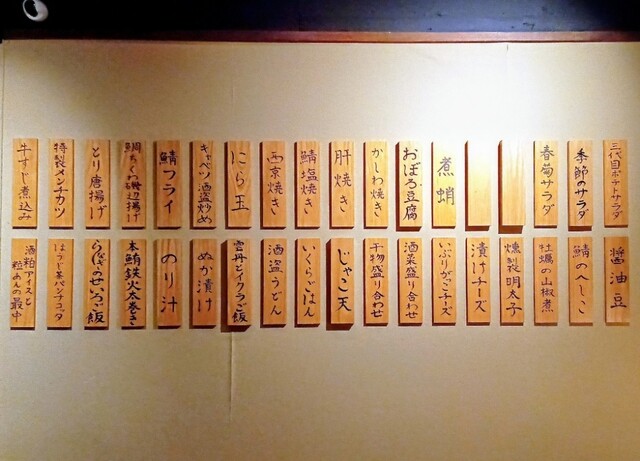 三代目ポテトサラダ
季節のサラダ
春菊サラダ
煮蛸
おぼろ豆腐
かしわ焼き
肝焼き
鯖塩焼き
西京焼き
にら玉
キャベツ酒盗炒め
鯖フライ
鯛ちくわ磯辺揚げ
とり唐揚げ
特製メンチカツ
牛すじ煮込み
醤油豆
鯖のへしこ
牡蠣の山椒煮
燻製明太子
漬けチーズ
いぶりがこチーズ
酒菜盛り合わせ
干物盛り合わせ
じゃこ天
いくらごはん
酒盗うどん
雲丹とイクラご飯
ぬか漬け
のり汁
本鮪鉄火太巻き
のせいろご飯
ほうじ茶パンナコッタ
酒粕アイスと
粒あんの最中